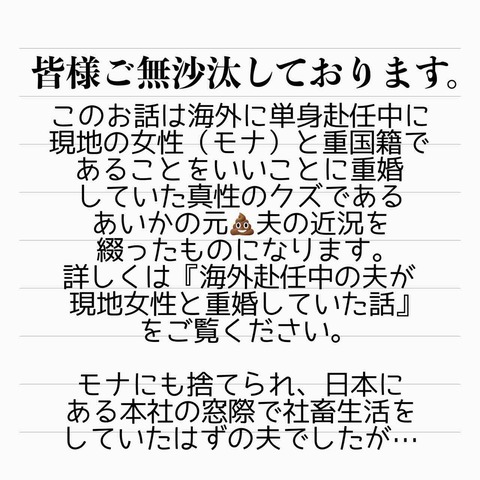 皆様ご無沙汰しております。
このお話は海外に単身赴任中に
現地の女性（モナ）と重国籍で
あることをいいことに重婚
していた真性のクズである
あいかの元💩夫の近況を
綴ったものになります。
詳しくは『海外赴任中の夫が
現地女性と重婚していた話』
をご覧ください。
モナにも捨てられ、日本に
ある本社の窓際で社畜生活を
していたはずの夫でしたが…